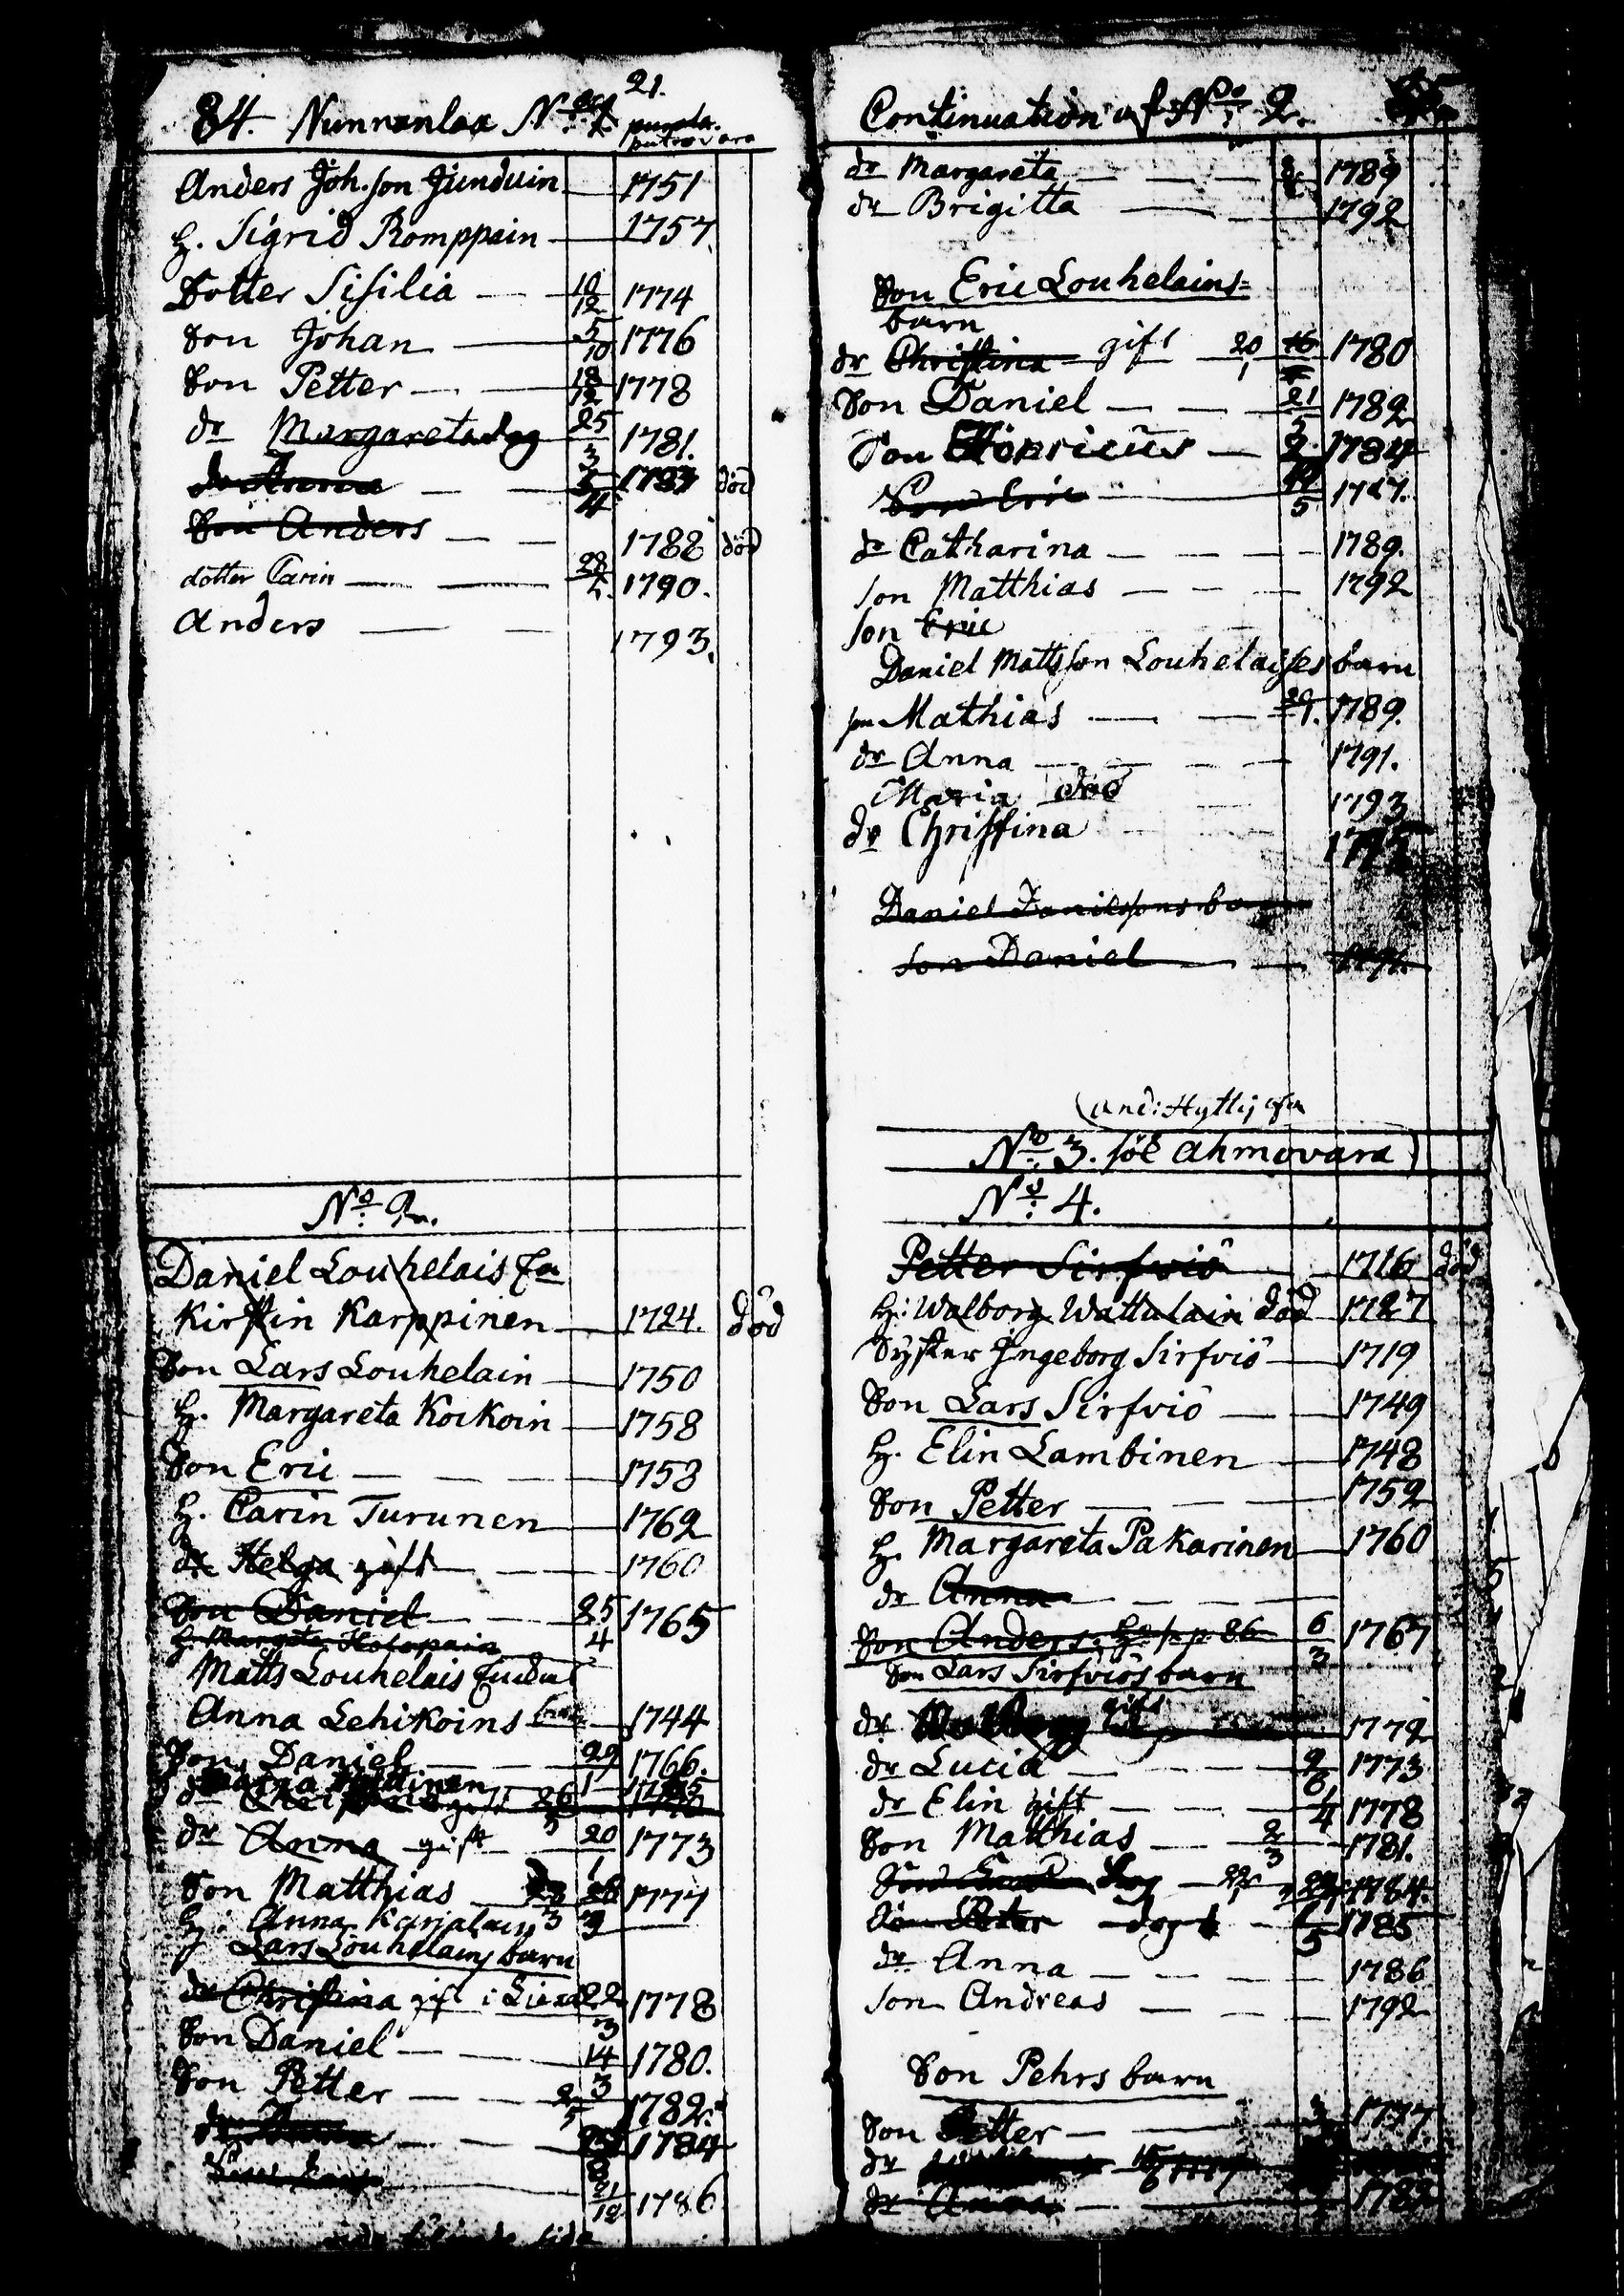 84. Nunnanlax No 1
21.
Anders Joh.son Junduin 1751
H. Sigrid Romppain 1757
Dotter Sisilia 10/12 1774
Son Johan 5/10 1776
Son Petter 18/12 1778
dr Margareta 25/3 1781.
dr Anna 5/4 död
Son Anders 1788 död
dotter Carin 28/ 1790.
Anders 1793.
No 2.
Daniel Louhelais En
Kirstin Karppinen 1724. död
Son Lars Louhelain 1750
H. Margareta Koikoin 1758
Son Eric 1758
H. Carin Turunen 1762
dr Helga gift 1760
Son Daniel 25/4 1765
H. Margeta
Matts Louhelais
Anna Lehikoins 1744
Son Daniel 29/1 1766.
dr
dr Anna gift 20/1 1773
Son Matthias 1777
H: Anna Karjalain
Lars Louhelains barn
dr Christina gift i 22/3 1778
Son Daniel 14/3 1780.
Son Petter 2/5 1782.
1784
21/12 1786
Continuation af No 2.
dr Margareta 1789
dr Brigitta 1792
Son Eric Louhelains=
barn
dr Christina gift 20/1 1780
Son Daniel 21/5 1782
Son Henricus 1784
Son Eric /5 1787.
dr Catharina 1789.
son Matthias 1792
son Eric
Daniel Mattsson Louhelaises barn
son Mathias 1789.
dr Anna 1791.
Maria död 1793
dr Christina
Daniel Danielssons barn
son Daniel
No 3. söl Ahmovara
No 4.
Petter Sirfviö 1716 död
H: Walborg Wattulain död 1727
Syster Ingeborg Sirfviö 1719
Son Lars Sirfviö 1749
H. Elin Lambinen 1748
Son Petter 1752
H. Margareta Pakarinen 1760
dr Anna
Son Anders p 86 6/3 1767
Son Lars Sirfviös barn
dr gift 1772
dr Lucia 1773
dr Elin gift 1/4 1778
Son Matthias 2/3 1781.
1784.
Son Peter 1785
dr Anna 1786
son Andreas 1792
Son Pehrs barn
Son Petter 1777
dr
dr Anna 1782